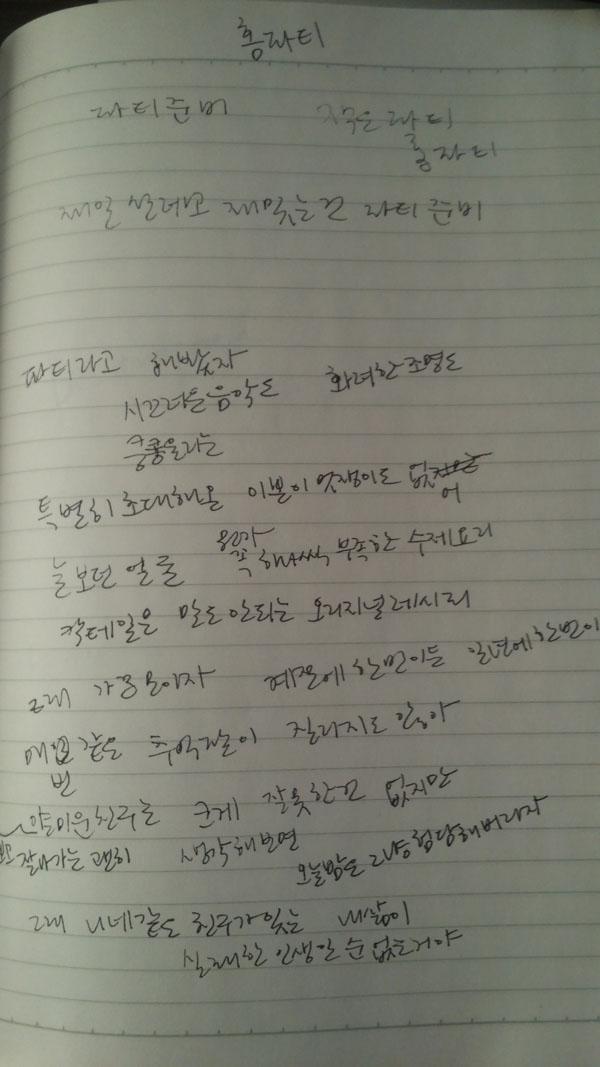 홈파티
파티준비 작은파티
홈파티
제일 설레고 재밌는건 파티준비
파티라고 해봤자 화려한조명도
시끄러운음악도
쿵쿵울리는
특별히 초대해온 이쁜이 멋쟁이도 없어
늘보던 얼굴 원가 꼭 해써 부족한 수제요리
칵테일은 말도안되는 오리지널레시피
그래 가끔모이자 계절에한번이든 일년에한번이
매번 같은 추억팔이 질리지도 않아
얄미운친구는 크게 잘못한건 없지만
잘나가는 괜히 생각해보면 오늘밤은 그냥험담해버리자
그래 니네같은 친구가있는 내삶이
실패한 인생일 순 없는거야